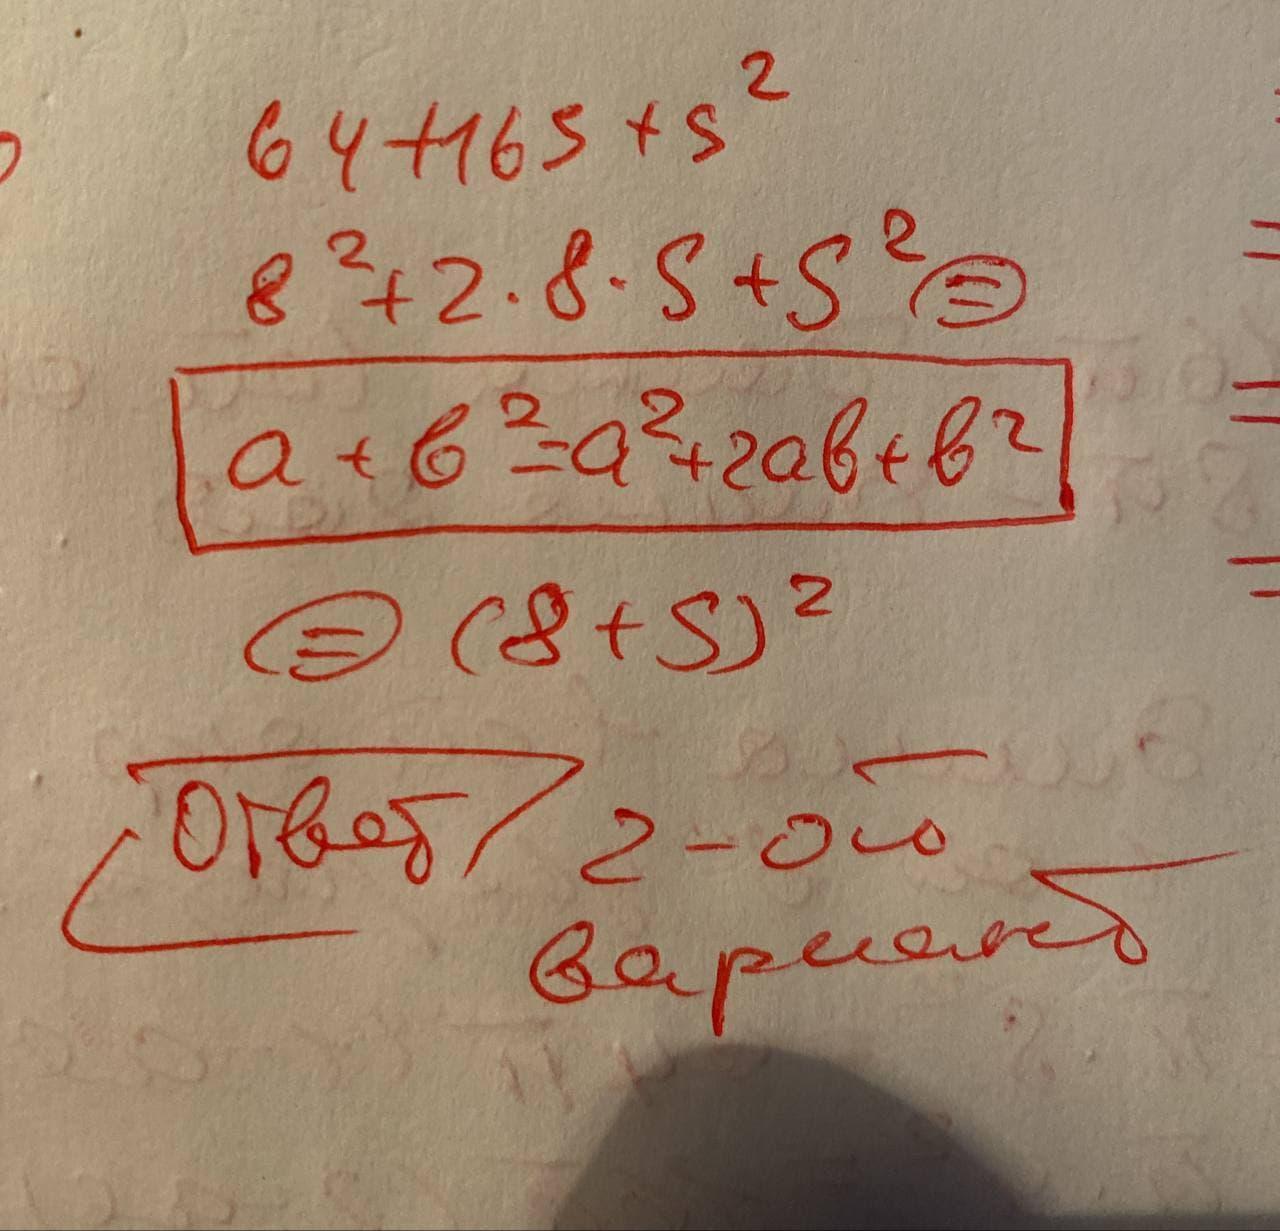 64+16s+s²
8²+2·8·s+s²=
a+b²=a²+2ab+b²
=(8+s)²
Ответ 2-ой
вариант